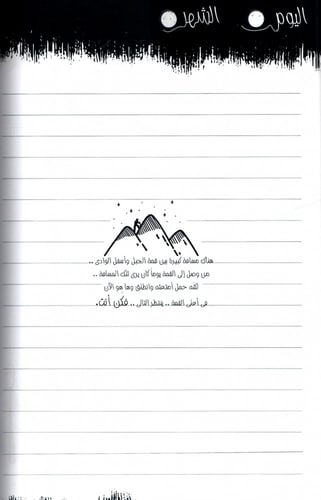 اليوم الشهر
هناك مسافة كبيرة بين قمة الجبل وأسفل الوادي ..
من وصل إلى القمة يوماً كان يرى تلك المسافة ..
لقد حمل أمتعته وانطلق وها هو الآن
في أعلى القمة .. ينتظر التالي .. فكن أنت.